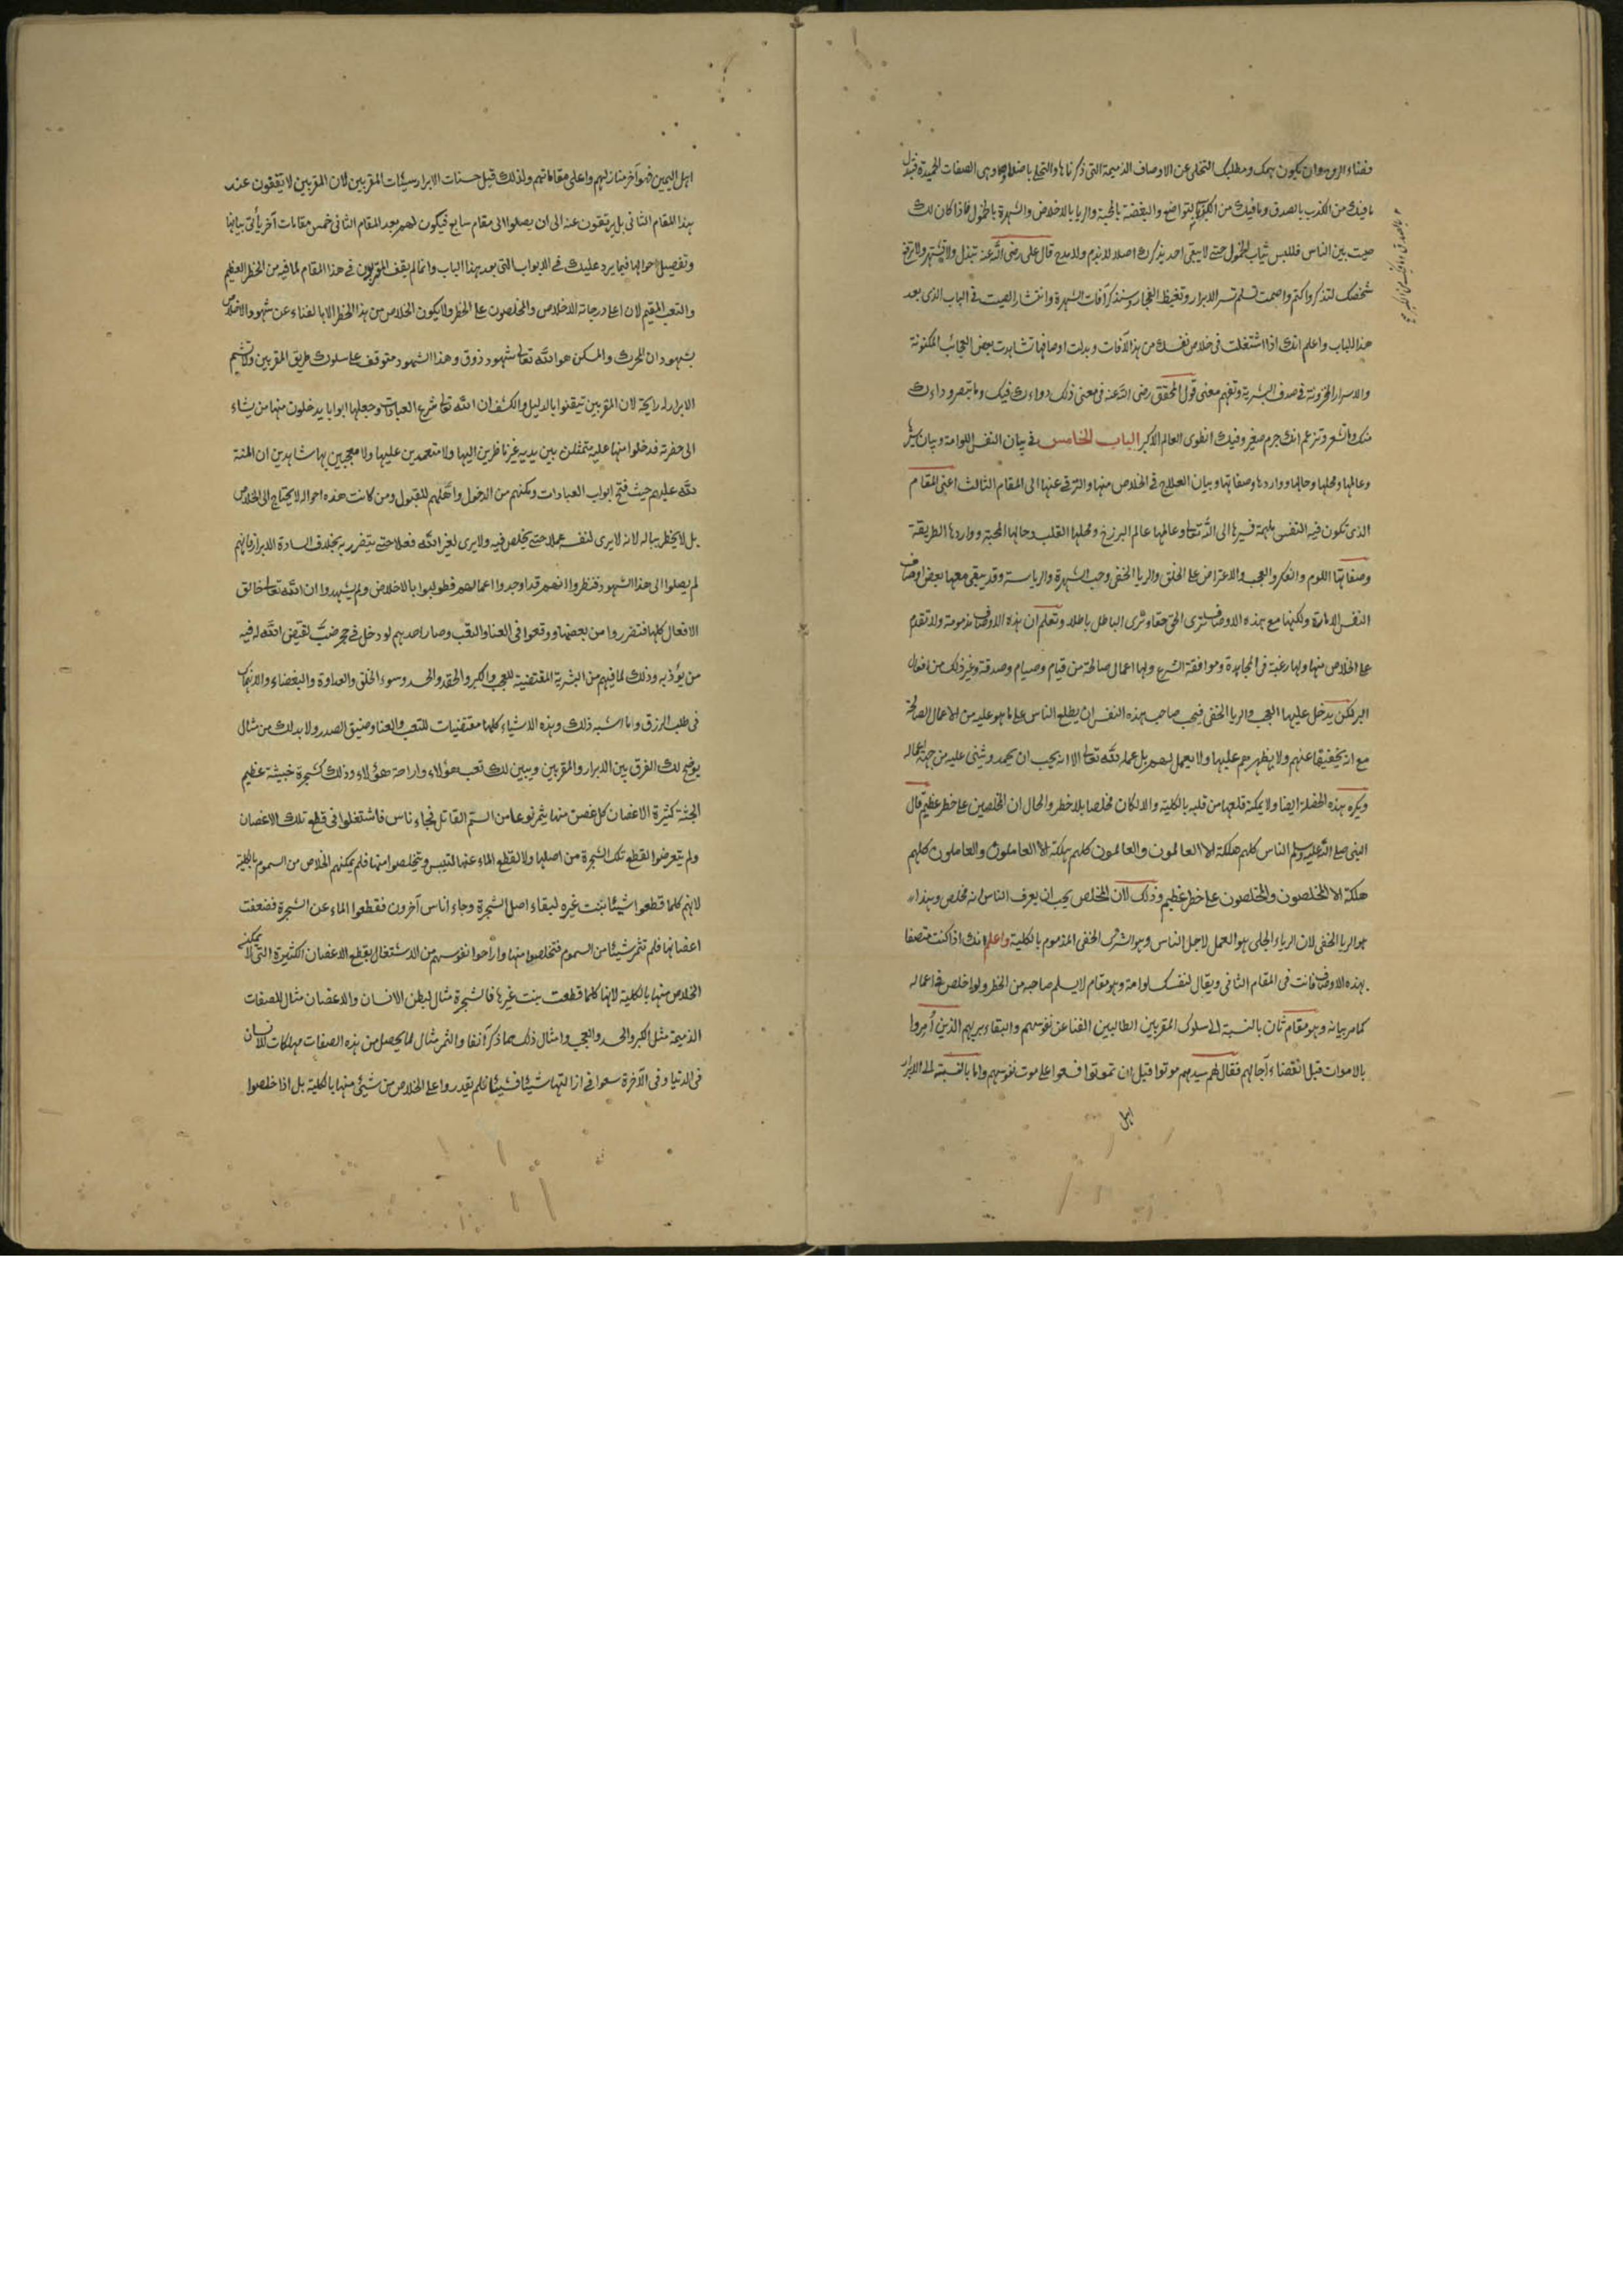 فغناء الروح وان يكون همك ومطلبك التخلى عن الاوصاف الذميمة التى ذكرناها والتحلى باضدادها وهى الصفات الحميدة فتبدل
ما فيك من الكذب بالصدق وما فيك من الكبر بالتواضع والبغضة بالمحبة والريا بالاخلاص والشهرة بالخمول فاذا كان لك
صيت بين الناس فللبس ثياب الخمول حتى لا يبقى احد يذكرك اصلا لا بذم ولا مدح قال على رضى الله عنه تبذل ولا تشتهر ولا ترفع
شخصك لتذكر واكتم واصمت تسلم تسر الابرار وتغيظ الفجار وسنذكر آفات الشهرة وانتشار الصيت فى الباب الذى بعد
هذا الباب واعلم انك اذا اشتغلت فى خلاص نفسك من هذه الآفات وبدلت اوصافها تشاهدت بعض العجائب المكنونة
والاسرار المخزونة فى صدف البشرية وتفهم معنى قول المحقق رضى الله عنه فى معنى ذلك دواءك فيك وما تبصر وداءك
منك وما تشعر وتزعم انك جرم صغير وفيك انطوى العالم الاكبر الباب الخامس فى بيان النفس اللوامة وبيان سيرها
وعالمها ومحلها وحالها وواردها وصفاتها وبيان العلاج فى الخلاص منها والترقى عنها الى المقام الثالث اعنى المقام
الذى تكون فيه النفس ملهمة فسيرها الى الله تعالى وعالمها عالم البرزخ ومحلها القلب وحالها المحبة وواردها الطريقة
وصفاتها اللوم والفكر والعجب والاعتراض على الخلق والريا الخفى وحب الشهرة والرياسة وقد يبقى معها بعض اوصاف
النفس الامارة ولكنها مع هذه الاوصاف ترى الحق حقا وترى الباطل باطلا وتعلم ان هذه الاوصاف مذمومة ولا تقدم
على الخلاص منها ولها رغبة فى المجاهدة وموافقة الشرع ولها اعمال صالحة من قيام وصيام وصدقة وغير ذلك من افعال
البر لكن يدخل عليها العجب والريا الخفى فيحب صاحب هذه النفس ان يطلع الناس على ما هو عليه من الاعمال الصالحة
مع انه يخفيها عنهم ولا يظهرهم عليها ولا يعمل لهم بل عمله لله تعالى الا انه يحب ان يحمد ويثنى عليه من جهة اعماله
ويكره هذه الخصلة ايضا ولا يمكنه قلعها من قلبه بالكلية والا لكان مخلصا بلا خطر والحال ان المخلصين على خطر عظيم قال
النبى صلى الله عليه وسلم الناس كلهم هلكة الا العالمون والعالمون كلهم هلكة الا العاملون والعاملون كلهم
هلكة الا المخلصون والمخلصون على خطر عظيم وذلك لان المخلص يحب ان يعرف الناس انه مخلص وهذا
هو الريا الخفى لان الرياء الجلى هو العمل لاجل الناس وهو الشرك الخفى المذموم بالكلية واعلم انك اذا كنت متصفا
بهذه الاوصاف فانت فى المقام الثانى ويقال لنفسك لوامة وهو مقام لا يسلم صاحبه من الخطر ولو اخلص فى اعماله
كما مر بيانه وهو مقام ثان بالنسبة الى سلوك المقربين الطالبين الفنا عن نفوسهم والبقاء بربهم الذين أمروا
بالاموات قبل انقضاء آجالهم فقال لهم سيدهم موتوا قبل ان تموتوا فسعوا على موت نفوسهم واما بالنسبة الى الابرار
اهل
اهل اليمين فهو آخر منازلهم واعلى مقاماتهم ولذلك قيل حسنات الابرار سيئات المقربين لان المقربين لا يقفون عند
هذا المقام الثانى بل يرتقون عنه الى ان يصلوا الى مقام سابع فيكون لهم بعد المقام الثانى خمس مقامات آخر يأتى بيانها
وتفصيل احوالها فيما يرد عليك فى الابواب التى بعد هذا الباب وانما لم يقف المقربون فى هذا المقام لما فيه من الخطر العظيم
والتعب المقيم لان اعلا درجاته الاخلاص والمخلصون على الخطر ولا يكون الخلاص من هذا الخطر الا بالفناء عن شهود الاخلاص
بشهود ان المحرك والمسكن هو الله تعالى شهود ذوق وهذا الشهود متوقف على سلوك طريق المقربين ولا تشم
الابرار له رايحة لان المقربين تيقنوا بالدليل والكشف ان الله تعالى شرع العبادات وجعلها ابوابا يدخلون منها من يشاء
الى حضرته فدخلوا منها عليه متمثلين بين يديه غير ناظرين اليها ولا متعمدين عليها ولا معجبين بها شاهدين ان المنة
لله عليهم حيث فتح ابواب العبادات ومكنهم من الدخول واهلهم للقبول ومن كانت هذه احواله لا يحتاج الى الخلاص
بل لا يخطر بباله لانه لا يرى لنفسه عملا حتى يخلص فيه ولا يرى لغير الله فعلا حتى يتضرر به بخلاف السادة الابرار فانهم
لم يصلوا الى هذا الشهود فنظروا انهم قد اوجدوا اعمالهم فطولبوا بالاخلاص ولم يشهدوا ان الله تعالى خالق
الافعال كلها فتضرروا من بعضها ووقعوا فى العنا والتعب وصار احدهم لو دخل فى جحر ضب لقيض الله له فيه
من يؤذيه وذلك لما فيهم من البشرية المقتضية للعجب والكبر والحقد والحسد وسوء الخلق والعداوة والبغضاء والانهماك
فى طلب الرزق وما اشبه ذلك وهذه الاشياء كلها مقتضيات للتعب والعنا وضيق الصدر ولا بد لك من مثال
يوضح لك الفرق بين الابرار والمقربين ويبين لك تعب هؤلاء وراحة هؤلاء وذلك كشجرة خبيثة عظيم
الجثة كثيرة الاغصان كل غصن منها يثمر نوعا من السم القاتل فجاء ناس فاشتغلوا فى قطع تلك الاغصان
ولم يتعرضوا لقطع تلك الشجرة من اصلها ولا لقطع الماء عنها لتيبس ويتخلصوا منها فلم يمكنهم الخلاص من السموم بالكلية
لانهم كلما قطعوا شيئا نبت غيره لبقاء اصل الشجرة وجاء اناس آخرون فقطعوا الماء عن الشجرة فضعفت
اغصانها فلم تثمر شيئا من السموم فتخلصوا منها واراحوا نفوسهم من الاشتغال بقطع الاغصان الكثيرة التى لا يمكنهم
الخلاص منها بالكلية لانها كلما قطعت نبتت غيرها فالشجرة مثال لبطن الانسان والاغصان مثال للصفات
الذميمة مثل الكبر والحسد والعجب وامثال ذلك مما ذكر آنفا والثمر مثال لما يحصل من هذه الصفات مهلكات للانسان
فى الدنيا وفى الآخرة سعوا فى ازالتها شيئا فشيئا فلم يقدروا على الخلاص من شيئ منها بالكلية بل اذا خلصوا